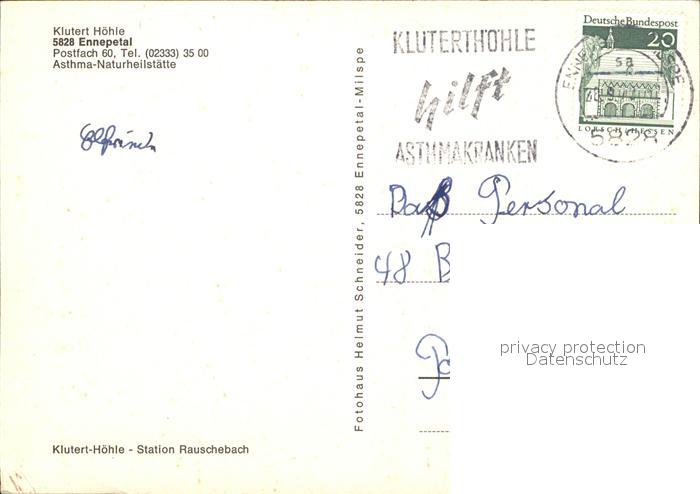 Klutert Höhle
5828 Ennepetal
Postfach 60, Tel. (02333) 35 00
Asthma-Naturheilstätte
Klutert-Höhle - Station Rauschebach
Fotohaus Helmut Schneider, 5828 Ennepetal-Milspe
KLUTERTHÖHLE
hilft
ASTHMAKRANKEN
Deutsche Bundespost
20
LORSCH/HESSEN
5828
Personal
48 B
privacy protection
Datenschutz